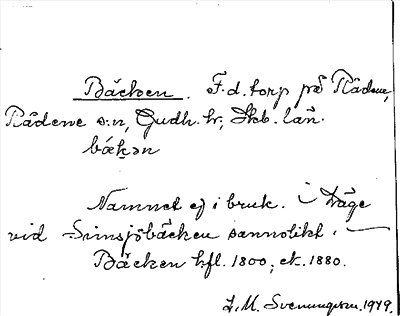 Bäcken. F.d. torp på Rådene,
Rådene s:n, Gudh. hr, Skb. län.
bækən
Namnet ej i bruk. Läge
vid Simsjöbäcken sannolikt.
Bäcken hfl. 1800; ek. 1880.
L.M. Svenungsson. 1979.